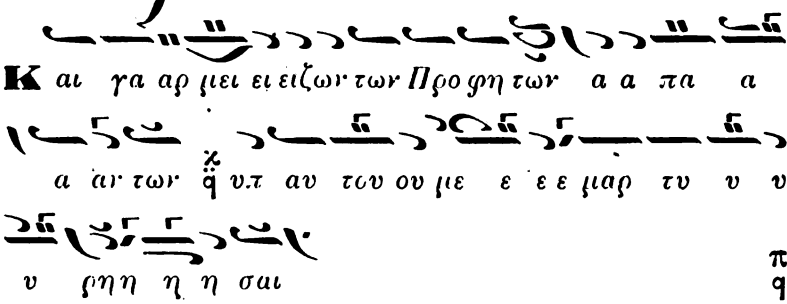 Και γα αρ μει ει ειζων των Προ φη των α α πα α
α αν των χ q υπ αυ του ου με ε ε ε μαρ τυ υ υ
υ ρη η η η σαι π q